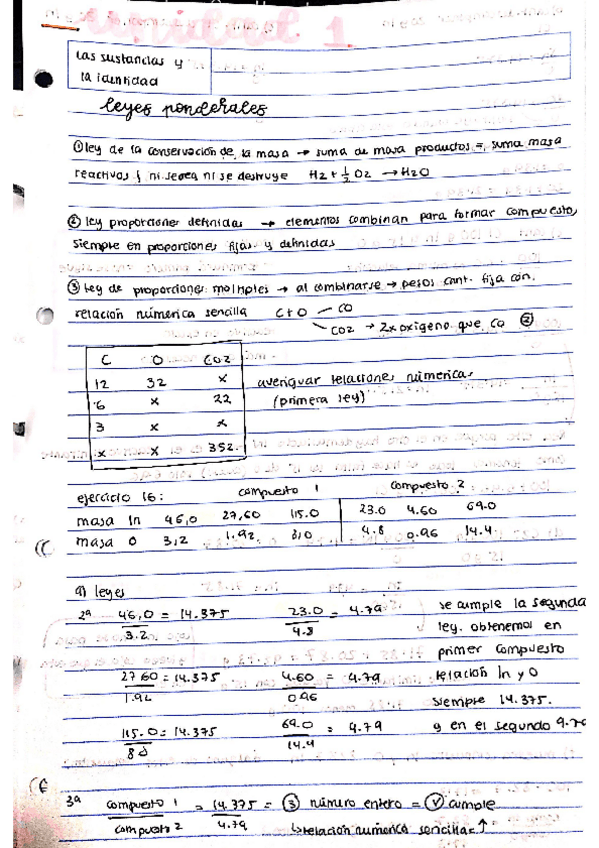 Unidad 1.
Las sustancias y
la identidad
leyes ponderales
① ley de la conservación de la masa → suma de masa productos = suma masa
reactivos { ni se crea ni se destruye H2 + 1/2 O2 → H2O
② ley proporciones definidas → elementos combinan para formar compuestos
siempre en proporciones fijas y definidas
③ Ley de proporciones múltiples → al combinarse → pesos cant. fija con
relación númerica sencilla C+O — CO
CO2 → 2x oxigeno que CO ②
C O CO2
12 32 x
6 x 22 averiguar relaciones númericas
3 x x (primera ley)
x x 352.
ejercicio 16: compuesto 1 compuesto 2
masa In 46,0 27,60 115.0 23.0 4.60 69.0
masa O 3,2 1.92 8,0 4.8 0.96 14.4
a) leyes
2ª 46,0/3.2 = 14.375 23.0/4.8 = 4.79 se cumple la segunda
ley. obtenemos en
primer compuesto
27.60/1.92 = 14.375 4.60/0.96 = 4.79 relación In y O
siempre 14.375.
115.0/8.0 = 14.375 69.0/14.4 = 4.79 y en el segundo
3ª compuesto 1/compuesto 2 = 14.375/4.79 = ③ número entero = Ⓥ cumple
↳ relación númerica sencilla = ↑